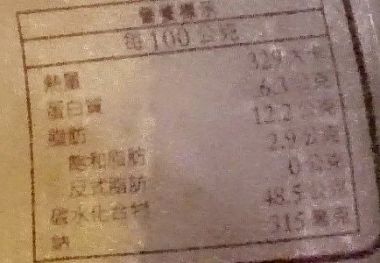 營養標示
每100公克
熱量 329大卡
蛋白質 6.3公克
脂肪 12.2公克
飽和脂肪 2.9公克
反式脂肪 0公克
碳水化合物 48.5公克
鈉 315毫克